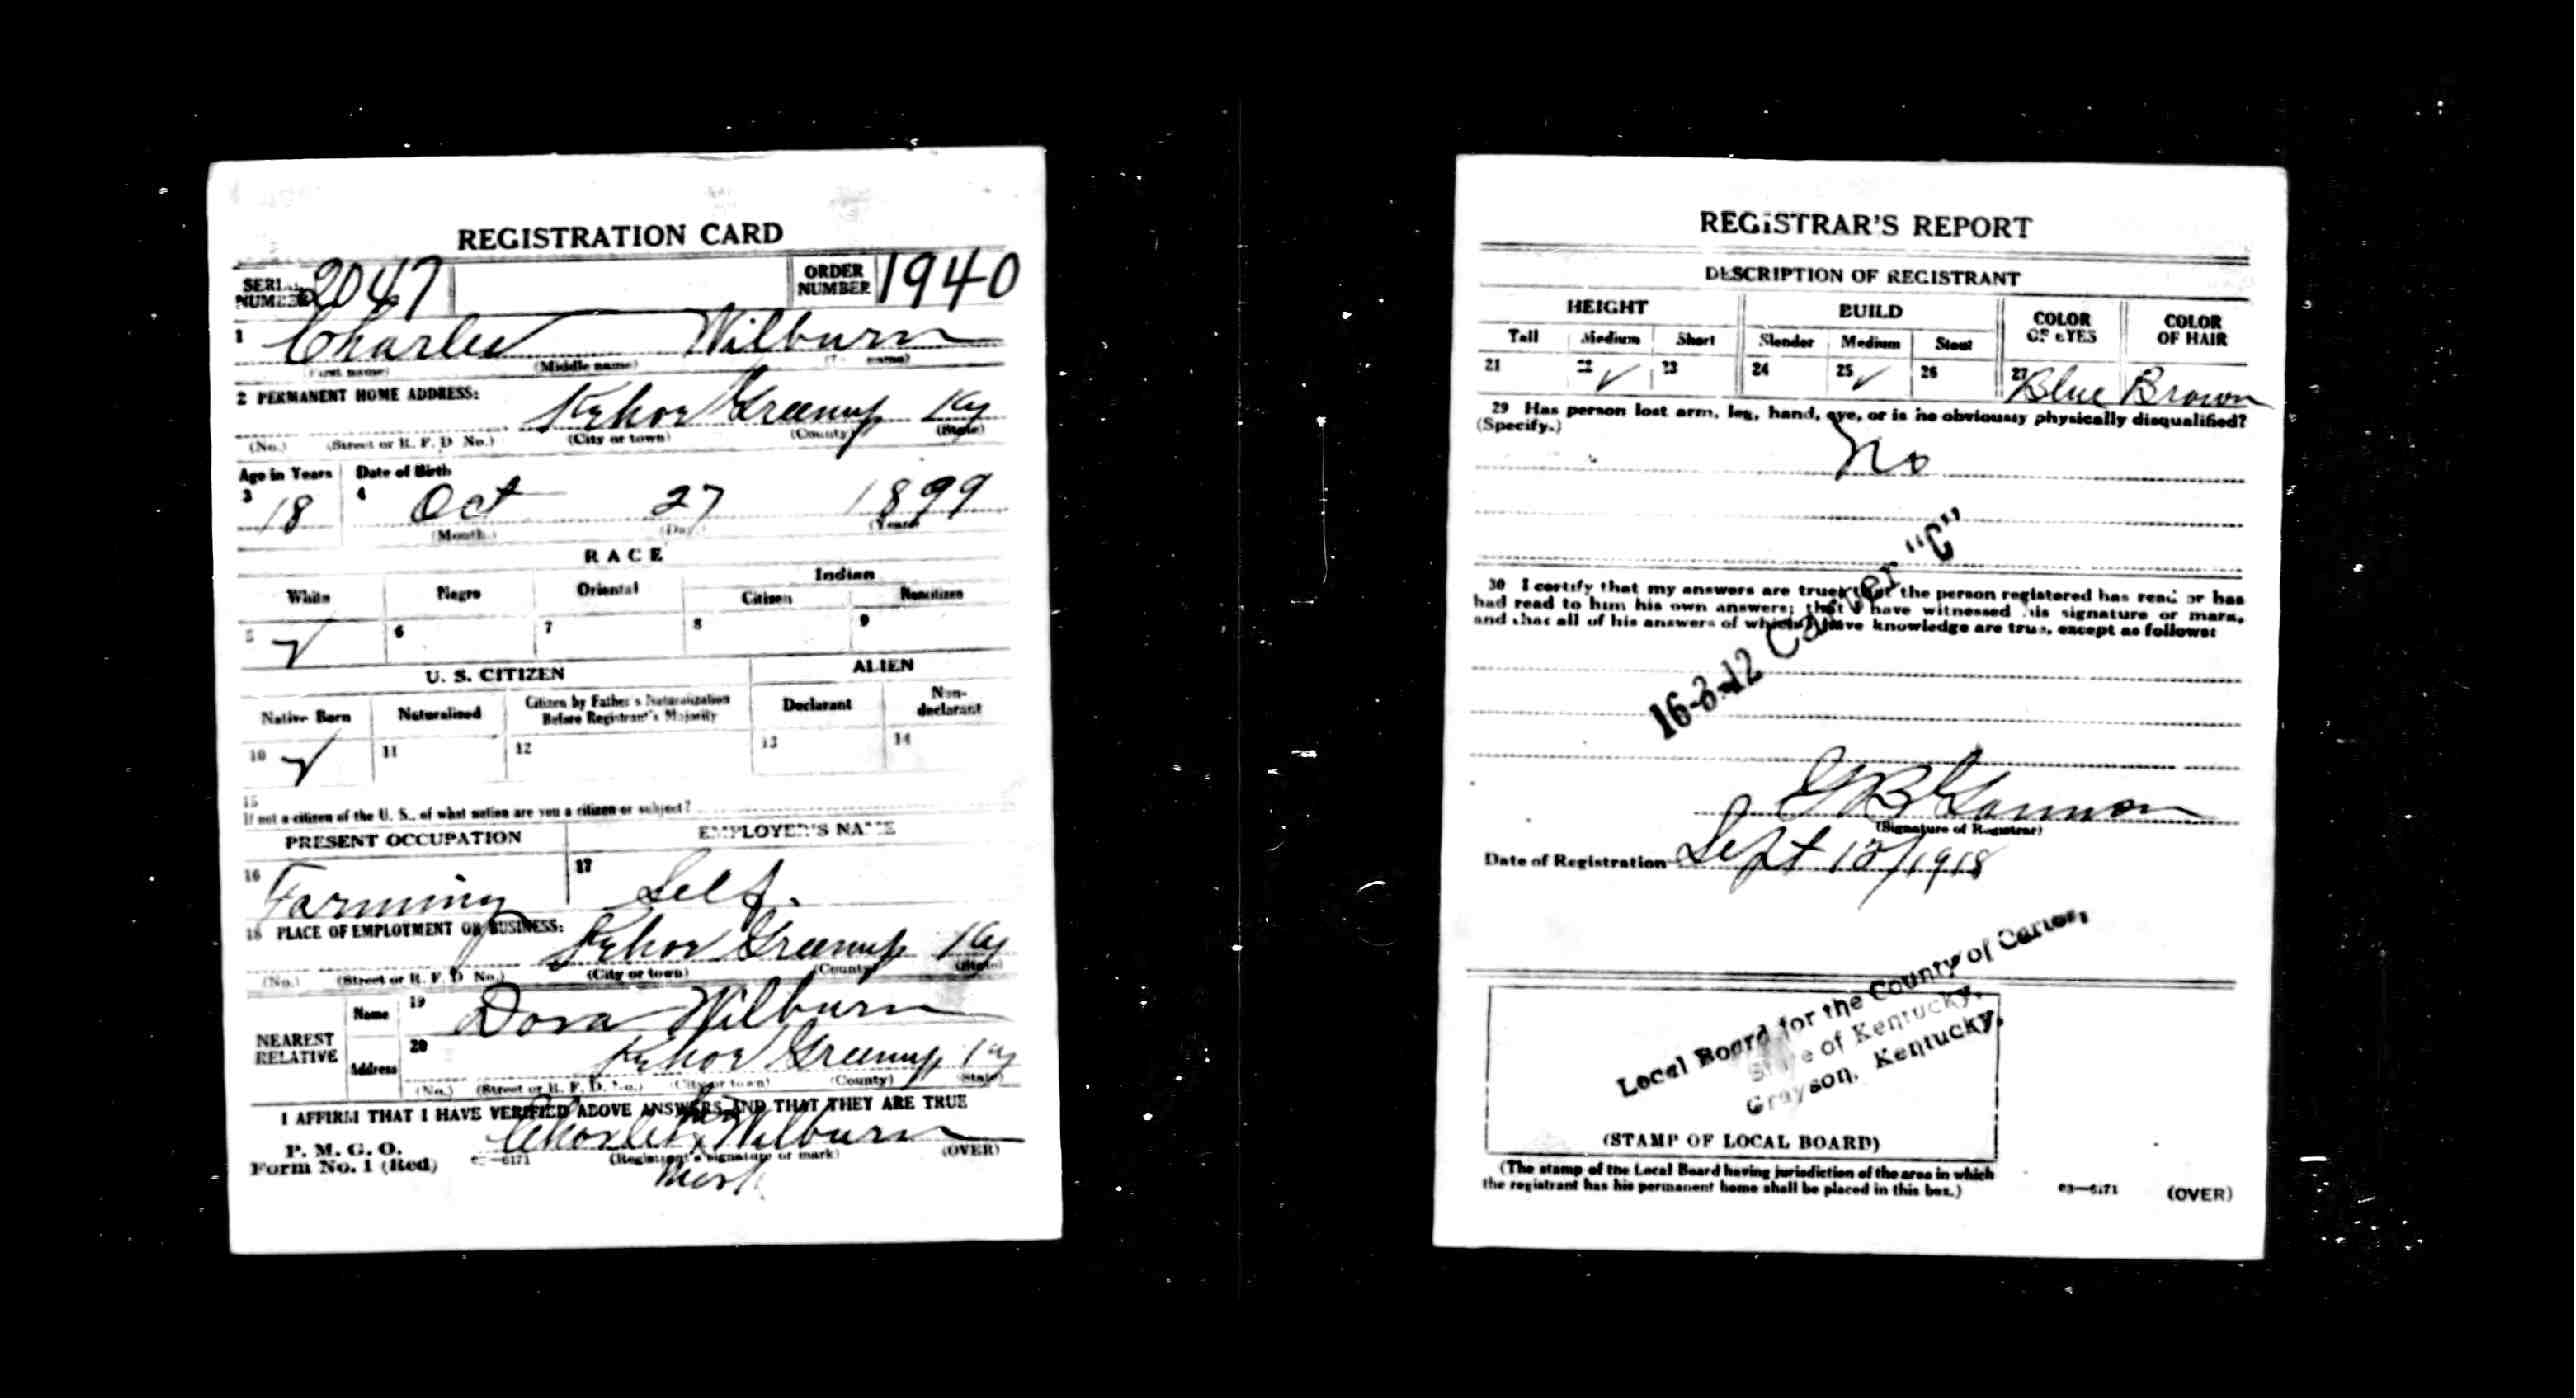 REGISTRATION CARD
SERIAL NUMBER 2047 ORDER NUMBER 1940
1 Charles Wilburn
(First name) (Middle name) (name)
2 PERMANENT HOME ADDRESS:
Greenup Ky
(No.) (Street or R. F. D No.) (City or town) (County) (State)
Age in Years Date of Birth
3 18 4 Oct 27 1899
(Month.) (Day.) (Year)
RACE
White Negro Oriental Indian
Citizen Noncitizen
5 ✓ 6 7 8 9
U. S. CITIZEN ALIEN
Native Born Naturalized Citizen by Father's Naturalization Before Registrant's Majority Declarant Non-declarant
10 ✓ 11 12 13 14
15
If not a citizen of the U. S., of what nation are you a citizen or subject?
PRESENT OCCUPATION EMPLOYER'S NAME
16 Farming 17 Self.
18 PLACE OF EMPLOYMENT OR BUSINESS:
Greenup Ky
(No.) (Street or R. F. D No.) (City or town) (County) (State)
NEAREST RELATIVE
Name 19 Dora Wilburn
Address 20 Greenup Ky
(No.) (Street or R. F. D. No.) (City or town) (County) (State)
I AFFIRM THAT I HAVE VERIFIED ABOVE ANSWERS AND THAT THEY ARE TRUE
P. M. G. O.
Form No. 1 (Red)
his
Charles x Wilburn
6171 (Registrant's signature or mark) (OVER)
Mark
REGISTRAR'S REPORT
DESCRIPTION OF REGISTRANT
HEIGHT BUILD COLOR OF EYES COLOR OF HAIR
Tall Medium Short Slender Medium Stout
21 22 ✓ 23 24 25 ✓ 26 27 Blue Brown
29 Has person lost arm, leg, hand, eye, or is he obviously physically disqualified?
(Specify.)
No
30 I certify that my answers are true; that the person registered has read or has
had read to him his own answers; that I have witnessed his signature or mark,
and that all of his answers of which I have knowledge are true, except as follows:
16-3-12 Carver "C"
(Signature of Registrar)
Date of Registration Sept 12/1918
Local Board for the County of Carter,
State of Kentucky,
Grayson, Kentucky.
(STAMP OF LOCAL BOARD)
(The stamp of the Local Board having jurisdiction of the area in which
the registrant has his permanent home shall be placed in this box.)
03—6171 (OVER)